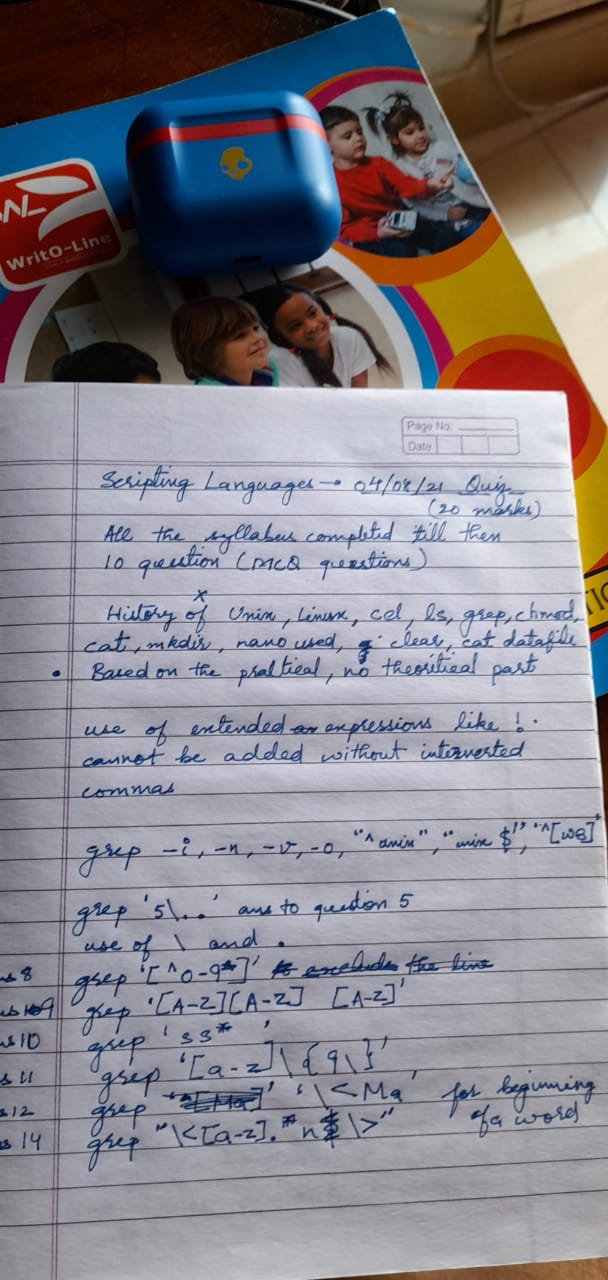 WritO-Line
Page No.
Date
Scripting Languages → 04/08/21 Quiz
(20 marks)
All the syllabus completed till then
10 question (MCQ questions)
x
History of Unix, Linux, cd, ls, grep, chmod,
cat, mkdir, nano used, clear, cat datafile
• Based on the pratical, no theoritical part
use of extended expressions like !.
cannot be added without interverted
commas
grep -i, -n, -v, -o, "^unix", "unix $", "^[we]"
grep '5\..' ans to question 5
use of \ and .
8 grep '[^0-9]' to exclude the line
9 grep '[A-Z][A-Z] [A-Z]'
10 grep 'ss* '
11 grep '[a-z]\{9\}'
12 grep '\<Ma' for beginning
of a word
14 grep "\<[a-z].*n\>"